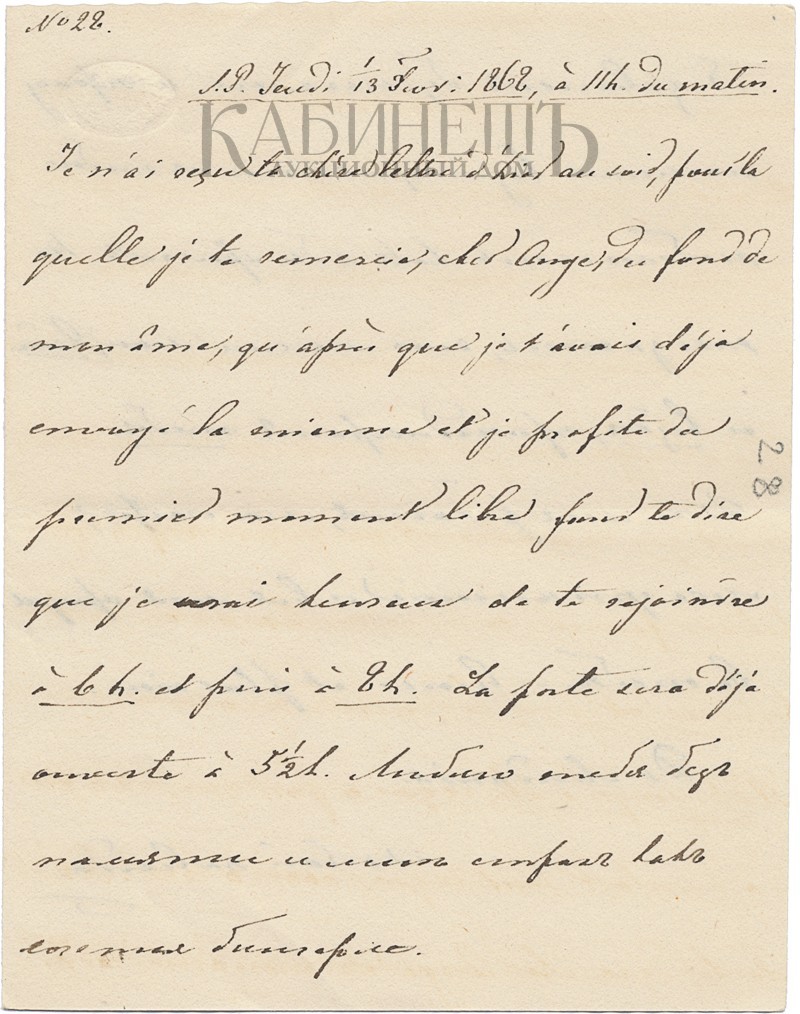 No 28.
S.P. Jeudi 1/13 Fevr: 1868, à 11h. du matin.
КАБИНЕТЪ
АУКЦИОННЫЙ ДОМ
Je n'ai reçu ta chère lettre d'hier au soir, pour la
quelle je te remercie, cher Ange, du fond de
mon âme, qu'après que je t'avais déja
envoyé la mienne et je profite du
premier moment libre pour te dire
que je serai heureux de te rejoindre
à 6 h. et puis à 8h. La porte sera déja
ouverte à 5 1/2h. Люблю тебя безъ
памяти и
28